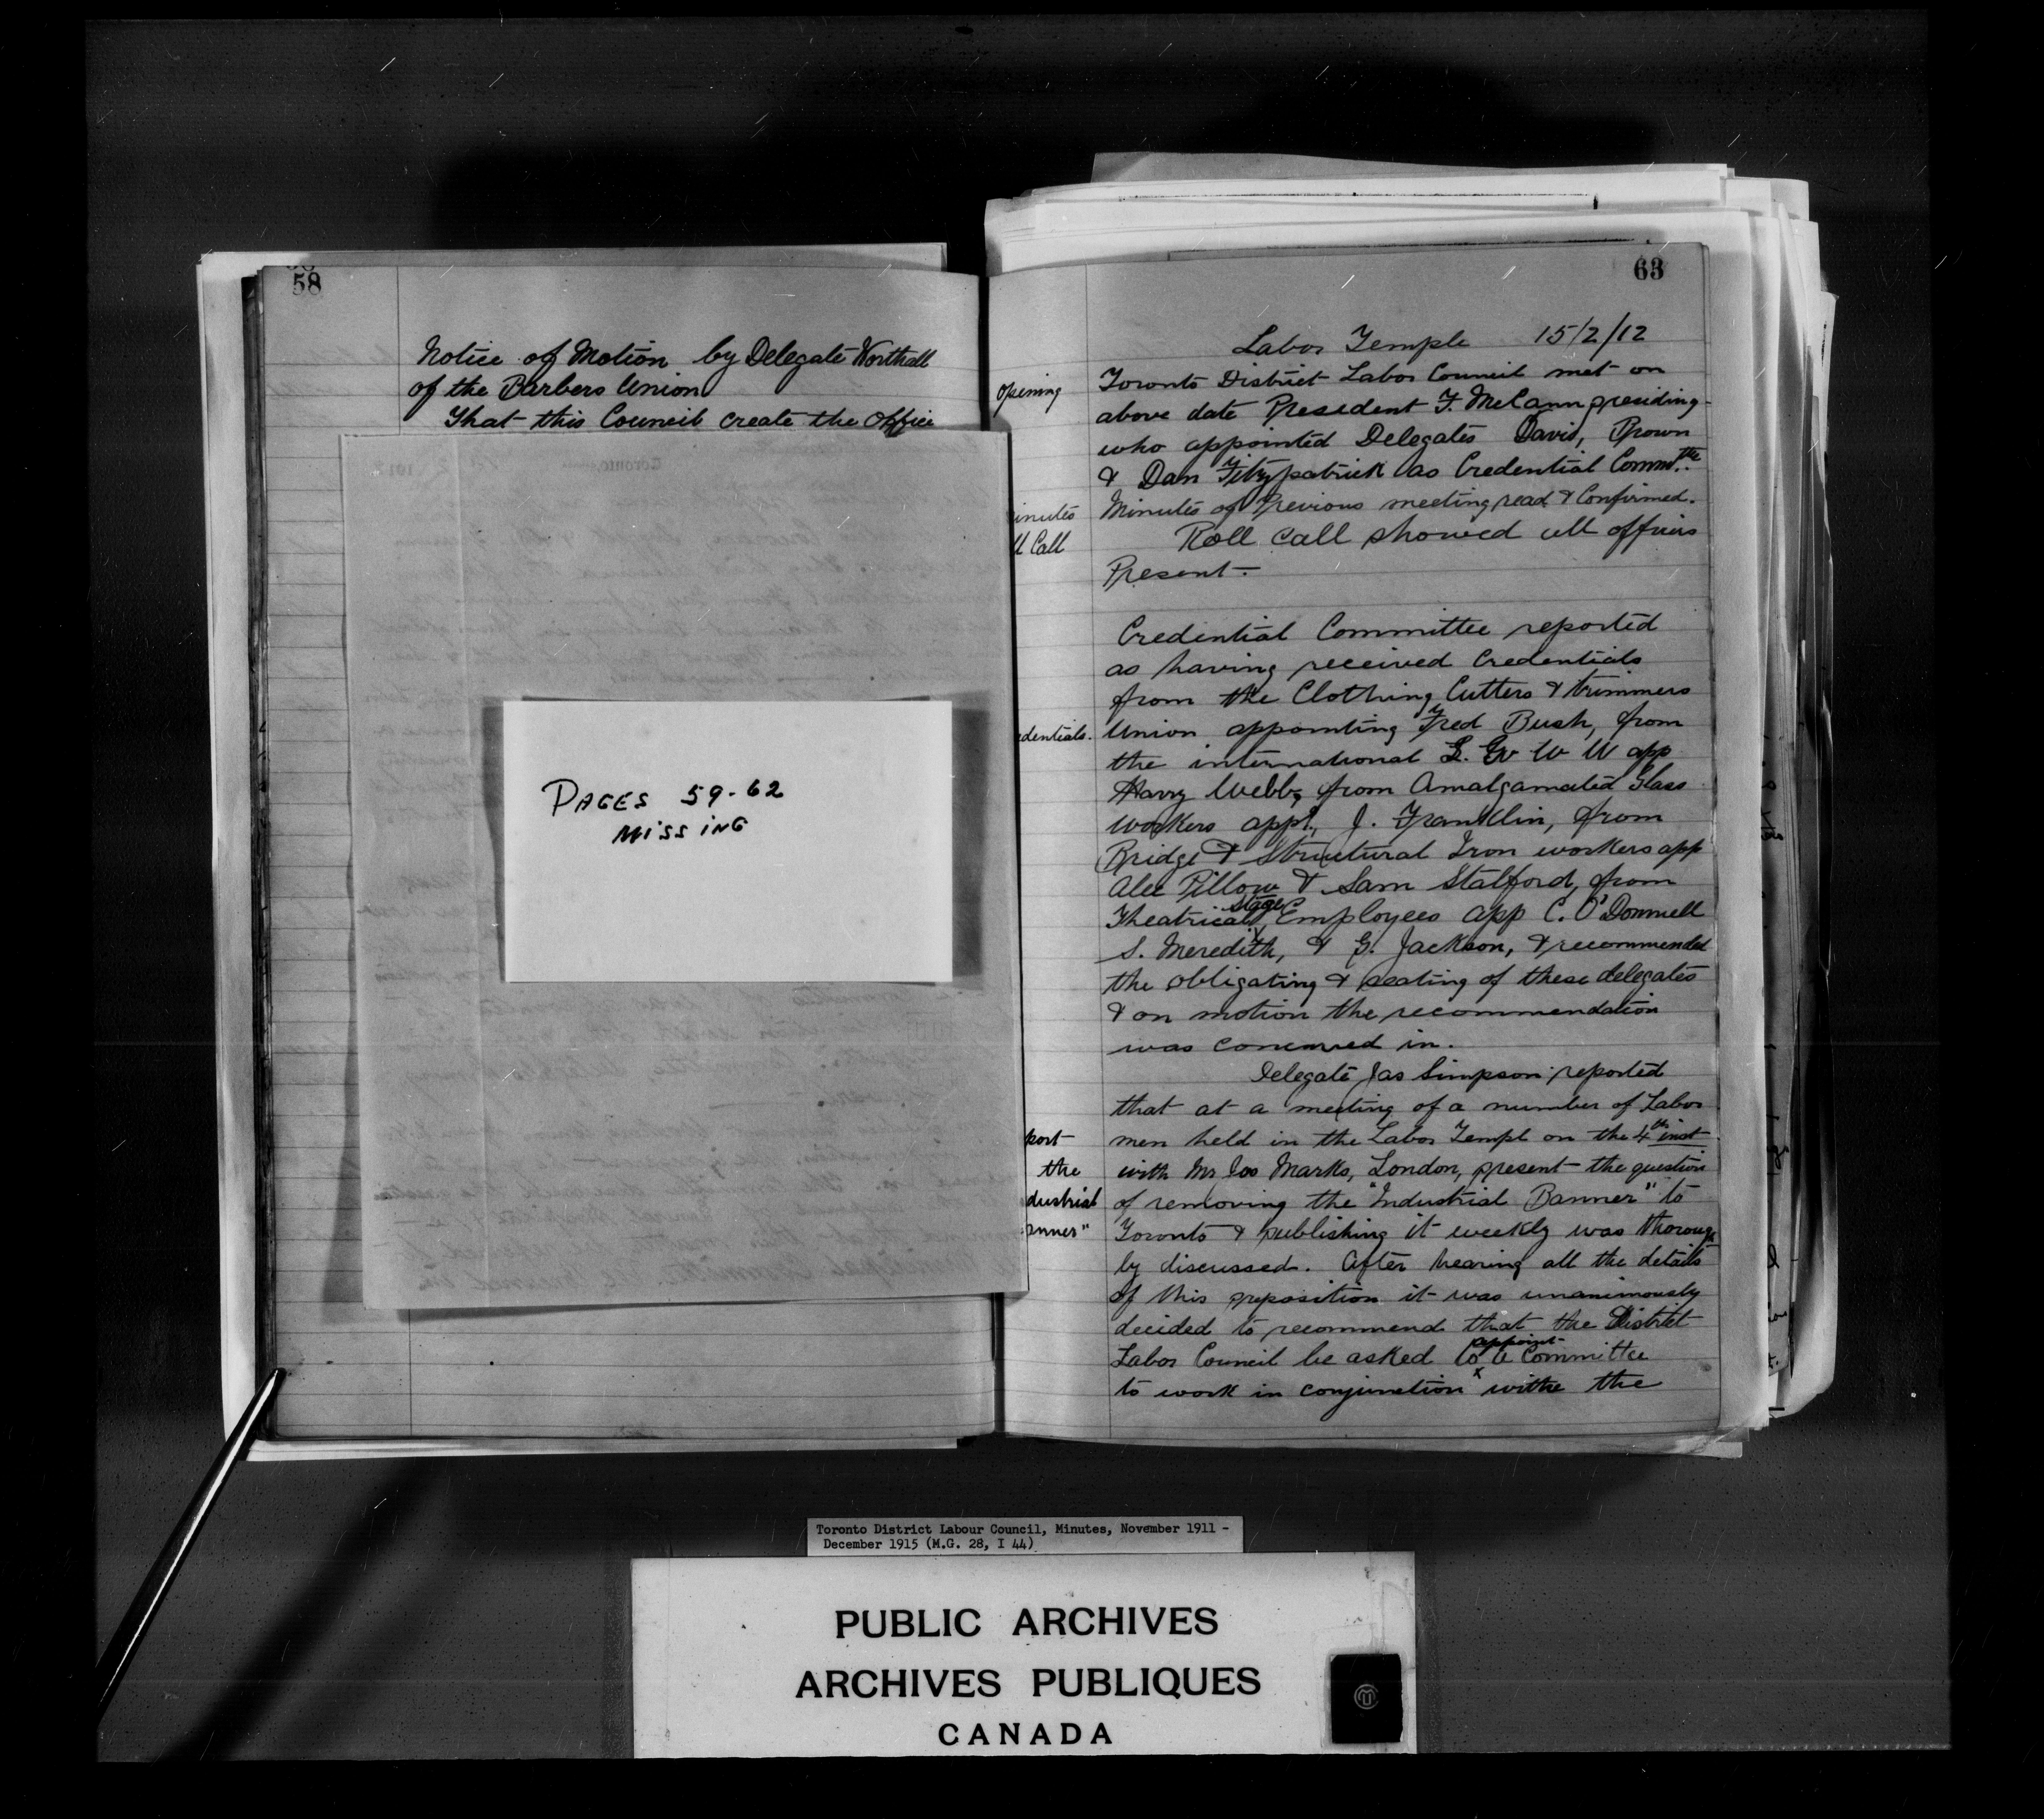 58
Notice of Motion by Delegate Worthall
of the Barbers Union
That this Council create the Office
PAGES 59-62
MISSING
63
Labor Temple 15/2/12
Opening
Toronto District Labor Council met on
above date President F. McCann presiding
who appointed Delegates David, Brown
& Dan Fitzpatrick as Credential Commttee
inutes
Minutes of Previous meeting read & Confirmed.
ll Call
Roll call showed all officers
Present.
Credential Committee reported
as having received Credentials
from the Clothing Cutters & trimmers
edentials.
Union appointing Fred Bush, from
the international L. G W W app
Harry Webb, from Amalgamated Glass
workers appt, J. Franklin, from
Bridge & Structural Iron workers app
Alec Pillow & Sam Stalford, from
Theatrical stage Employees app C. O'Donnell
S. Meredith, & G. Jackson, & recommended
the obligating & seating of these delegates
& on motion the recommendation
was concurred in.
Delegate Jas Simpson reported
that at a meeting of a number of Labor
port
men held in the Labor Templ on the 4th inst
the
with Mr Jos Marks, London, present the question
dustrial
of removing the "Industrial Banner" to
anner"
Toronto & publishing it weekly was thorough
ly discussed. After hearing all the details
of this preposition it was unanimously
decided to recommend that the District
Labor Council be asked to appoint a Committee
to work in conjunction withe the
Toronto District Labour Council, Minutes, November 1911 -
December 1915 (M.G. 28, I 44)
PUBLIC ARCHIVES
ARCHIVES PUBLIQUES
CANADA